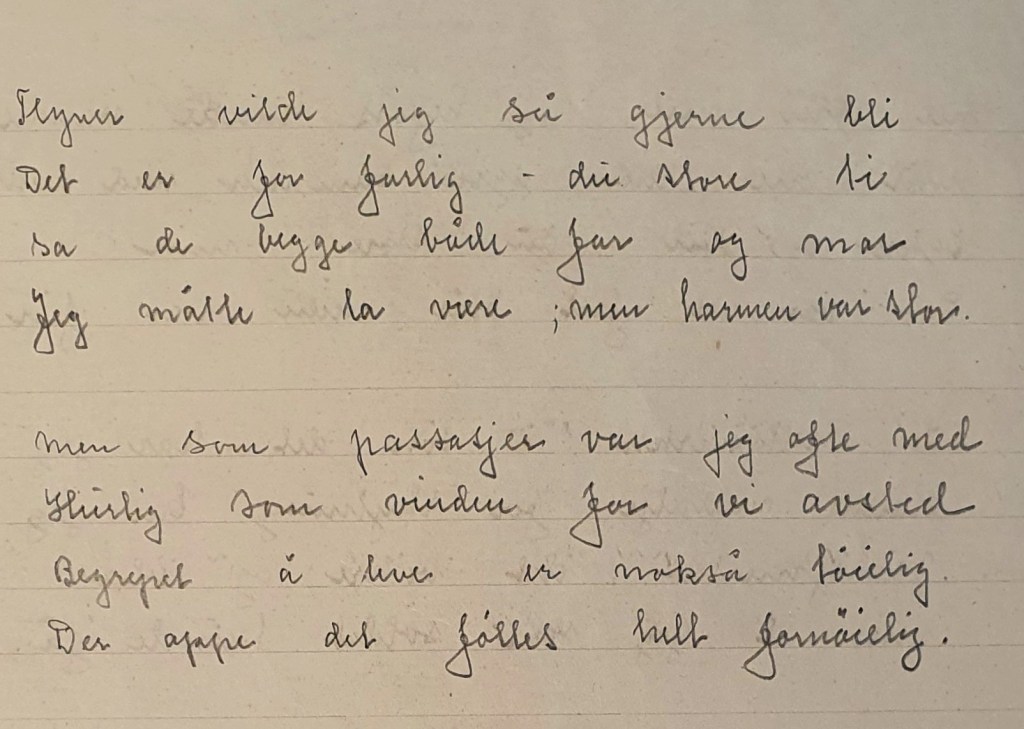 Flyver vilde jeg så gjerne bli
Det er for farlig - du store ti
sa de begge både far og mor
Jeg måtte la være ; men harmen var stor.
Men som passasjer var jeg ofte med
Hurtig som vinden for vi avsted
Begrepet å leve er nokså töielig.
Der oppe det föltes helt fornöielig.